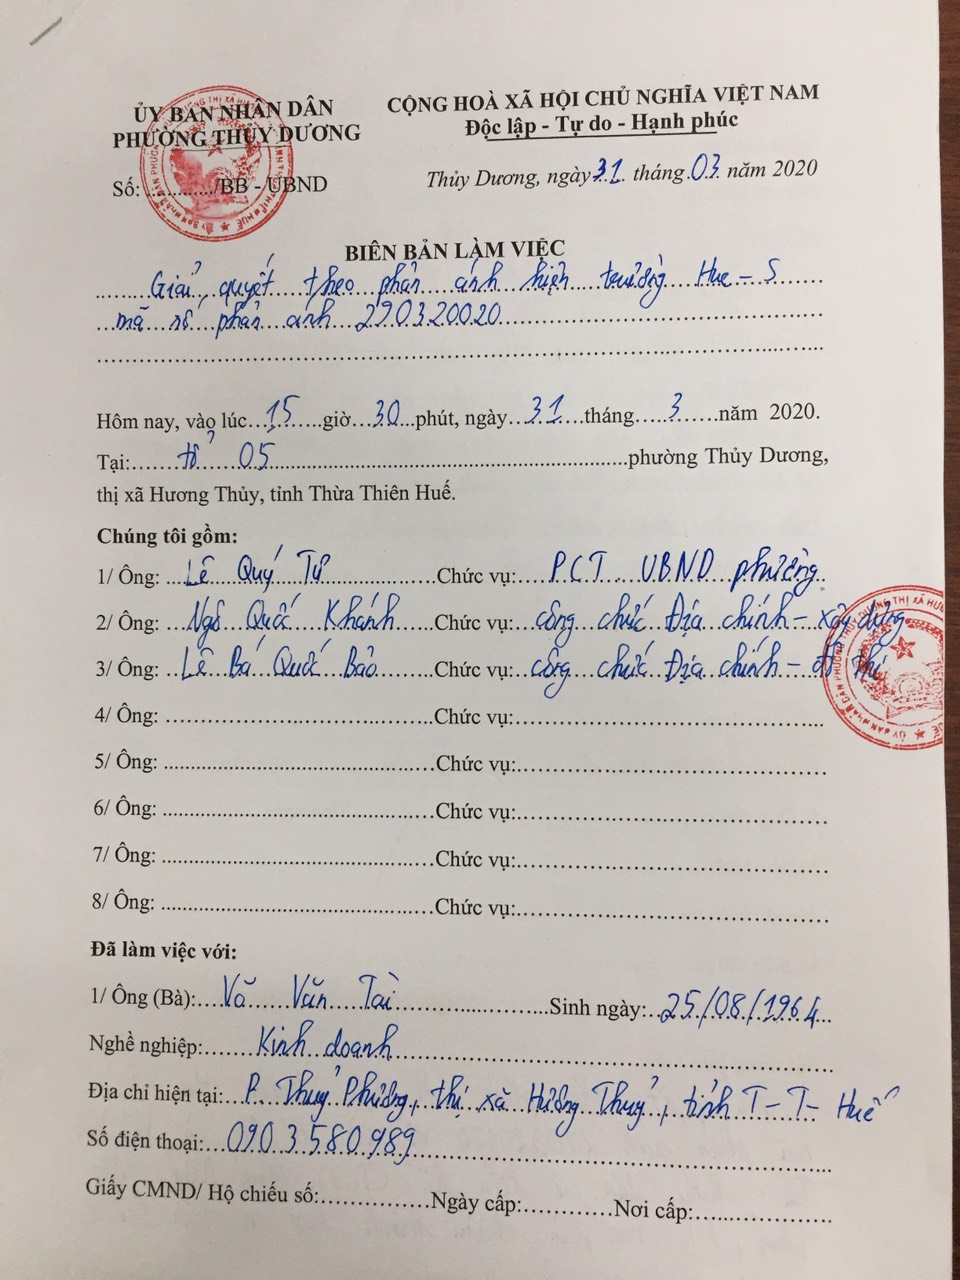 ỦY BAN NHÂN DÂN
PHƯỜNG THỦY DƯƠNG
Số: ............/BB - UBND
CỘNG HOÀ XÃ HỘI CHỦ NGHĨA VIỆT NAM
Độc lập - Tự do - Hạnh phúc
Thủy Dương, ngày 31 tháng 03 năm 2020
BIÊN BẢN LÀM VIỆC
Giải quyết theo phản ánh hiện trường Hue - S
mã số phản ánh 290320020
Hôm nay, vào lúc 15 giờ 30 phút, ngày 31 tháng 3 năm 2020.
Tại: tổ 05 phường Thủy Dương,
thị xã Hương Thủy, tỉnh Thừa Thiên Huế.
Chúng tôi gồm:
1/ Ông: Lê Quý Tự Chức vụ: P.CT UBND phường
2/ Ông: Ngô Quốc Khánh Chức vụ: công chức Địa chính - xây dựng
3/ Ông: Lê Bá Quốc Bảo Chức vụ: công chức Địa chính - đô thị
4/ Ông: Chức vụ:
5/ Ông: Chức vụ:
6/ Ông: Chức vụ:
7/ Ông: Chức vụ:
8/ Ông: Chức vụ:
Đã làm việc với:
1/ Ông (Bà): Văn Tài Sinh ngày: 25/08/1964
Nghề nghiệp: Kinh doanh
Địa chỉ hiện tại: P. Thuỷ Phương, thị xã Hương Thuỷ, tỉnh T-T- Huế
Số điện thoại: 0903580989
Giấy CMND/ Hộ chiếu số: Ngày cấp: Nơi cấp: